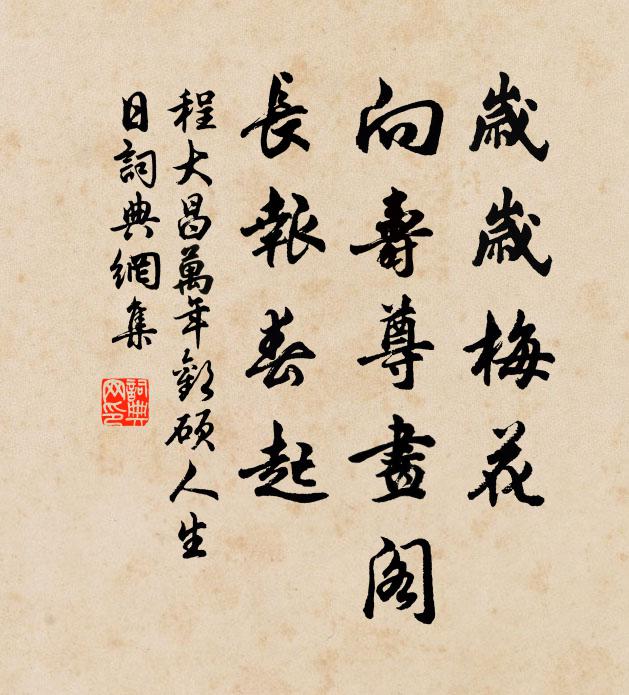 歲歲梅花
向壽尊畫閣
長報春起
程大昌萬年歡碩人生
日詞典網集
詞典
网印